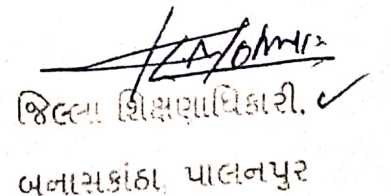 જિલ્લા શિક્ષણાધિકારી.
બનાસકાંઠા, પાલનપુર